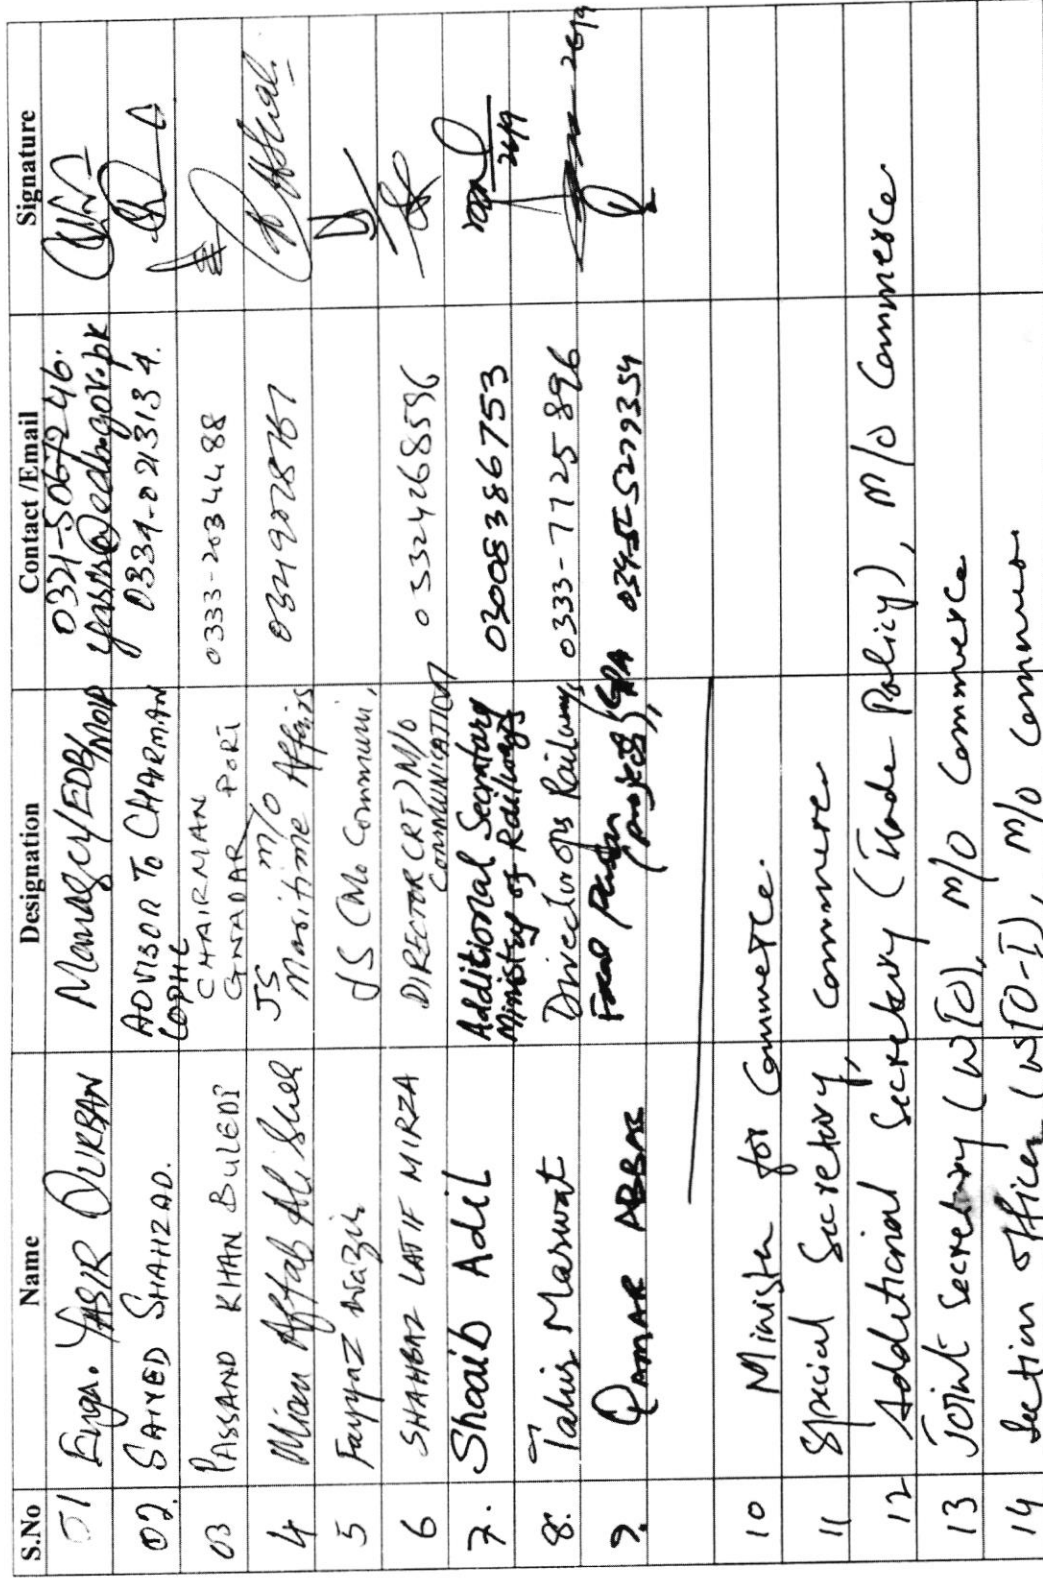 S.No Name Designation Contact /Email Signature
01 Engr. YASIR QURBAN Manager/EDB/MOIP 0321-5067246.
yasir@edb.gov.pk
02. SAIYED SHAHZAD. ADVISOR TO CHAIRMAN 0334-0213134.
COPHC
03 PASSAND KHAN BULEDI CHAIRMAN 0333-2034488
GWADAR PORT
4 Mian Aftab Ali Shah JS m/o
Maritime Affairs
5 Fayyaz Wazir JS (Mo Communi,
6 SHAHBAZ LATIF MIRZA DIRECTOR (RT) M/O 03324268596
COMMUNICATION
7. Shoaib Adil Additional Secretary 03008386753
Ministry of Railways 26/9
8. Tahir Marwat Director ops Railways 0333-7725896 26/9
9. QAMAR ABBAS Focal Person GPA 0345-5279354
(projects),
10 Minister for Commerce.
11 Special Secretary, Commerce
12 Additional Secretary (Trade Policy), M/o Commerce
13 Joint Secretary (WTO), M/o Commerce
14 Section Officer (WTO-I), M/o Commerce